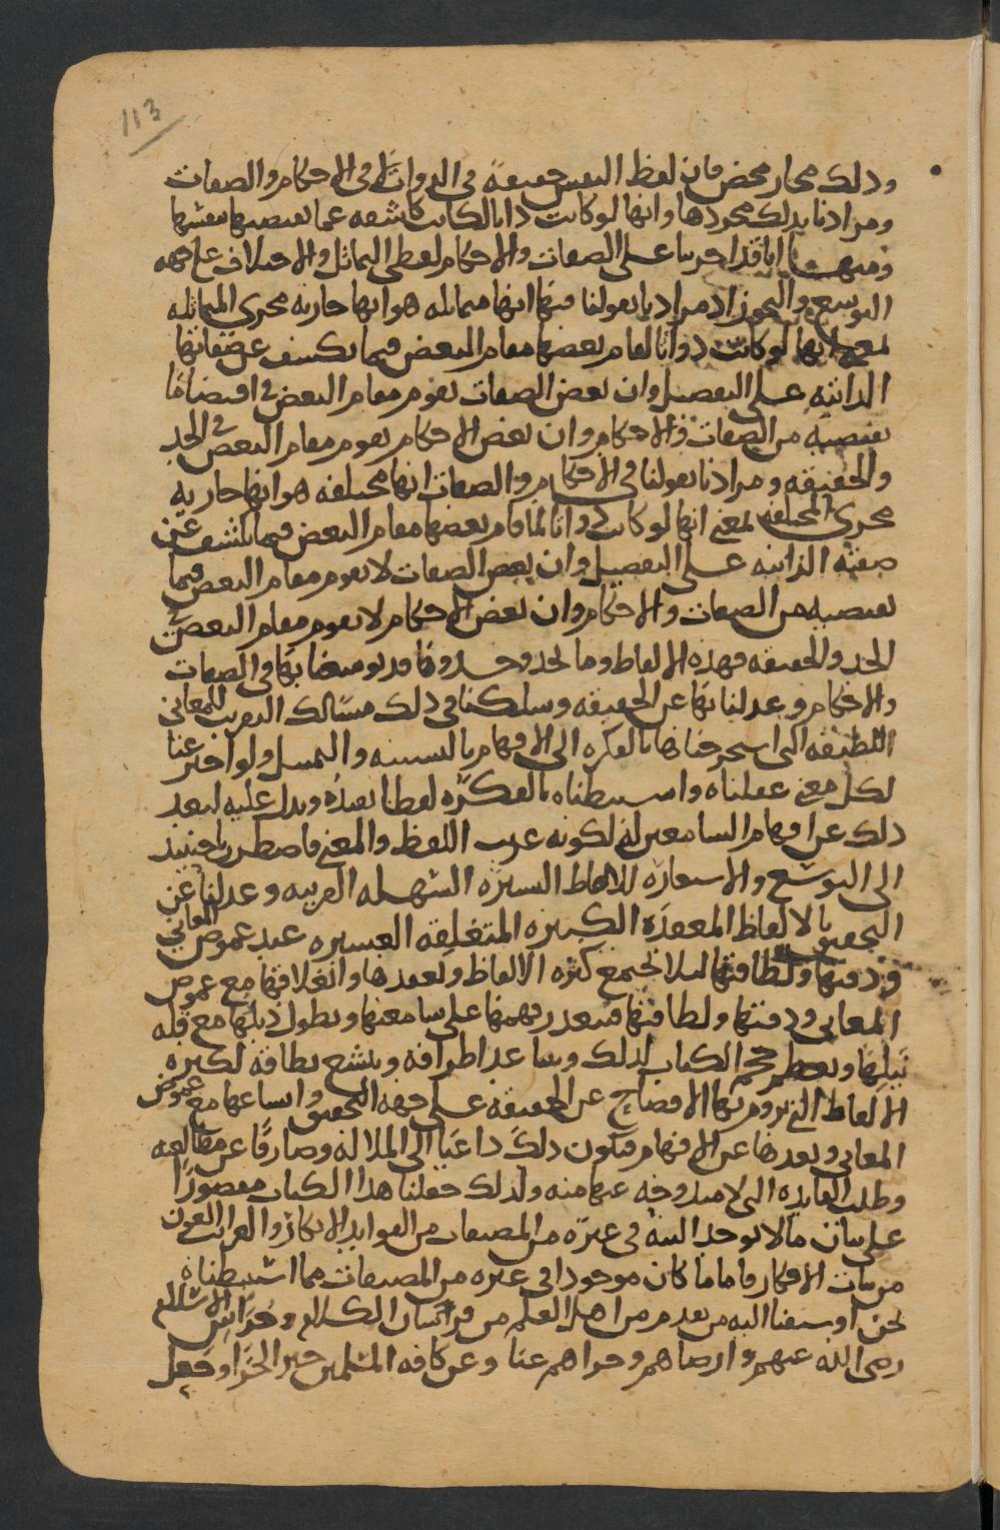 113
وذلك مجاز محض فان لفظ النفس حقيقة في الذوات لا في الاحكام والصفات
ومرادنا بذلك مجردها وانها لو كانت ذاتا لكانت كاشفه عما تقتضيها بنفسها
ومنها انا قد اجرينا على الصفات والاحكام لفظي التماثل والاختلاف على جهه
التوسع والتجوز اذ مرادنا بقولنا فيها انها متماثله هو انها جاريه مجرى المتماثله
لمعنى انها لو كانت ذواتا لقام بعضها مقام البعض فيما يكشف عن صفاتها
الذاتيه على التفصيل وان بعض الصفات يقوم مقام البعض في اقتضا ما
تقتضيه من الصفات والاحكام وان بعض الاحكام يقوم مقام البعض في الحد
والحقيقه ومرادنا بقولنا في الاحكام والصفات انها مختلفه هو انها جاريه
مجرى المختلفه لمعنى انها لو كانت ذواتا لما قام بعضها مقام البعض فيما يكشف عن
صفته الذاتيه على التفصيل وان بعض الصفات لا يقوم مقام البعض فيما
تقتضيه من الصفات والاحكام وان بعض الاحكام لا يقوم مقام البعض في
الحد والحقيقه فهذه الالفاظ وما يحذو حذوها قد توسعنا بها في الصفات
والاحكام وعدلنا بها عن الحقيقه وسلكنا في ذلك مسالك التقريب للمعاني
اللطيفه التي استخرجناها بالفكره الى الافهام بالتشبيه والتمثيل ولو اخترعنا
لكل معنى عقلناه واستنبطناه بالفكره لفظا يفيده ويدل عليه لبعد
ذلك عن افهام السامعين له لكونه غريب اللفظ والمعنى فاضطررنا حينيذ
الى التوسع والاستعاره للالفاظ اليسيره السهله القريبه وعدلنا عن
التحقيق بالالفاظ المعقده الكثيره المتغلقه العسيره عند غموض المعاني
ودقتها ولطافتها ليلا تجتمع كثره الالفاظ وتعقدها وانغلاقها مع غموض
المعاني ودقتها ولطافتها فيتعذر فهمها على سامعها ويطول ذيلها مع قله
نيلها ويعظم حجم الكتاب لذلك ويتباعد اطرافه ويتسع نطاقه لكثره
الالفاظ التي نروم بها الافصاح عن الحقيقه على جهه التحقيق واتساعها مع غموض
المعاني وبعدها عن الافهام فيكون ذلك داعيا الى الملاله وصارفا عن مطالعه
وطلب الفايده التي لا مندوحه عنها منه ولذلك جعلنا هذا الكتاب مقصورا
على بيان ما لا يوجد البته في غيره من المصنفات من الفوايد الابكار والغرايب العون
من بنات الافكار فاما ما كان موجودا في غيره من المصنفات مما استنبطناه
نحن او سبقنا اليه من تقدم من اهل العلم من فرسان الكلام وحراس الاسلام
رضي الله عنهم وارضاهم وجزاهم عنا وعن كافه المسلمين خير الجزا وجعل